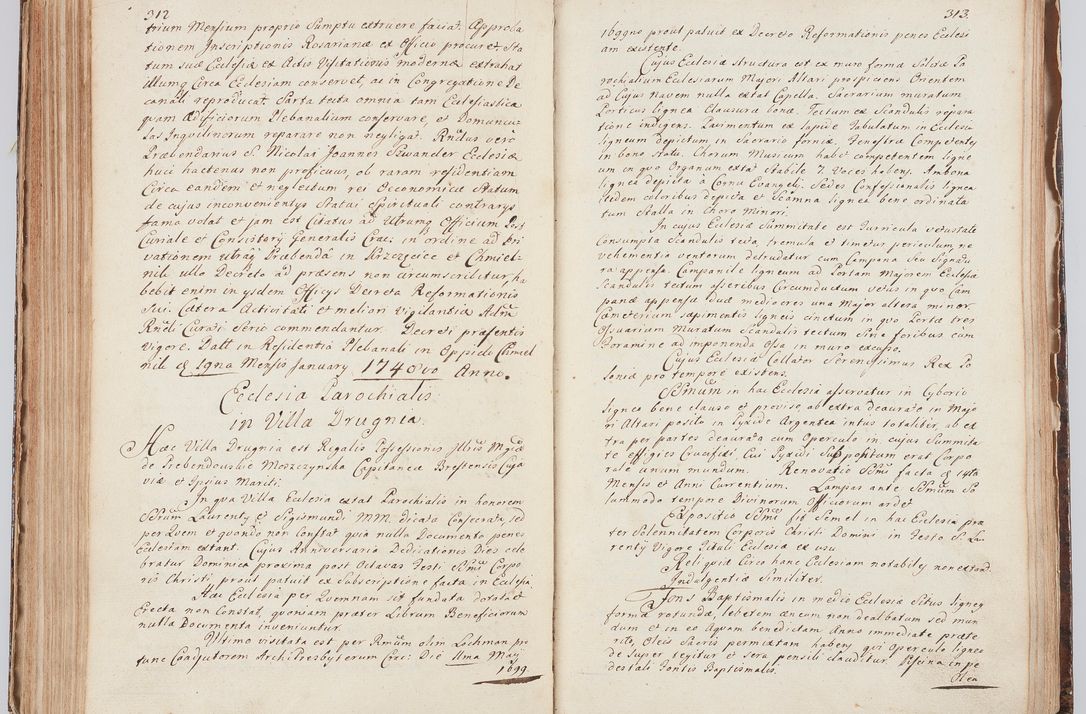 312
trium Mensium proprio Sumptu extruere faciat. Approba
tionem Inscriptionis Rosarianæ ex Officio procuret. Sta
tum suæ Ecclesiæ ex Actis Visitationis modernæ extrahat
illumq circa Ecclesiam conservet, ac in Congregatione De
canali reproducat. Sarta tecta omnia tam Ecclesiastica
quam Ædificiorum Plebanalium conservare, et Domuncu
las Inquilinorum reparare non negligat. Rndus vero
Præbendarius S. Nicolai Joannes Szwander Ecclesiæ
huic hactenus non proficuus, ob raram residentiam
Circa eandem et neglectum rei Oeconomicæ Statum
de cujus inconvenientys Statui Spirituali contrarys
fama volat et jam est Citatus ad Utrumq Officium
Curiale et Consistory Generalis Crac: in ordine ad pri
vationem utriusq Præbendæ in Krzczęcice et Chmiel
nik ullo Decreto ad præsens non circumscribitur, ha
bebit enim in ysdem Officys Decreta Reformationis
Sui. Cætera Activitati et meliori vigilantiæ
Rndi Curati Serio commendantur. Decreti præsentis
vigore. Datt in Residentia Plebanali in Oppido Chmiel
nik d. 19na Mensis January 1748vo Anno.
Ecclesia Parochialis
in Villa Drugnia.
Hæc Villa Drugnia est Regalis Possessionis
de Prebendowskie Moszczynska Capitanea Brestensis Cuja
viæ et Ipsius Mariti.
In qua Villa Ecclesia extat Parochialis in honorem
Laurenty et Sigismundi MM. dicata Consecrata, sed
per Quem et quando non Constat quia nulla Documenta penes
Ecclesiam extant. Cujus Anniversaria Dedicationis Dies cele
bratur Dominica proxima post Octavas Festi Corpo
ris Christi, prout patuit ex Subscriptione facta in Ecclesia
Hæc Ecclesia per Quemnam sit fundata dotata et
Erecta non Constat, quoniam præter Librum Beneficiorum
nulla Documenta inveniuntur.
Ultimo visitata est per olim Lochman pro
tunc Coadjutorem ArchiPresbyterum Crac: Die 11ma May
1699
313.
1699no prout patuit ex Decreto Reformationis penes Ecclesi
am existente.
Cujus Ecclesiæ structura est ex muro formæ Solidæ Pa
rochialium Ecclesiarum Majori Altari prospiciens Orientem
ad Cujus Navem nulla extat Capella. Sacrarium muratum
Porticus lignea Clausuræ bonæ. Tectum ex Scandulis repara
tione indigens. Pavimentum ex lapide Tabulatum in Ecclesia
ligneum depictum in Sacrario fornix. Fenestræ Competentes
in bono Statu. Chorum Musicum habet competentem ligne
um in quo Organum extat Stabile 7. Voces habens. Ambona
lignea depicta à Cornu Evangely. Sedes Confessionalis lignea
itidem coloribus depicta et Scamna lignea bene ordinata
tum Stalla in Choro Minori.
In cujus Ecclesiæ Summitate est Turricula vetustate
Consumpta Scandulis tecta, tremula et timetur periculum ne
vehementia ventorum detrudatur cum Campana Seu Signatu
ra appensa. Campanile ligneum ad Portam Majorem Ecclesiæ
Scandulis tectum asseribus Circumductum vetus in quo Cam
panæ appensæ duæ mediocres una Major altera minor.
Cæmeterium sæpimentis ligneis cinctum in quo Portæ tres
Ossuarium Muratum Scandulis tectum Sine foribus cum
Foramine ad imponenda Ossa in muro excisso.
Cujus Ecclesiæ Collator Serenissimus Rex Po
loniæ pro tempore existens.
SSmum in hac Ecclesia asservatur in Cyborio
ligneo bene clauso et proviso, ab extra deaurato in Majo
ri Altari posito in Pyxide Argentea intus totaliter, ab ex
tra per partes deaurata cum Operculo in cujus Summita
te effigies Crucifixi Cui Pyxidi Suppositum erat Corpo
rale unum mundum. Renovatio SSmi facta d. 14ta
Mensis et Anni Currentium. Lampas ante SSmum So
lummodo tempore Divinorum Officiorum ardet
Expositio SSmi fit Semel in hac Ecclesia præ
ter Solennitatem Corporis Christi Domini in Festo S. La
renty Vigore Tituli Ecclesiæ ex usu.
Reliquiæ Circa hanc Ecclesiam notabiles non extant.
Indulgentiæ Similiter.
Fons Baptismalis in medio Ecclesiæ Situs ligneg
formæ rotundæ, lebetem æneum non dealbatum sed mun
dum et in eo Aquam benedictam Anno immediate præte
rito, Oleis Sacris permixtam habens, qui Operculo ligneo
de Super tegitur et sera pensili clauditur. Piscina in pe
destali Fontis Baptismalis.
Olea